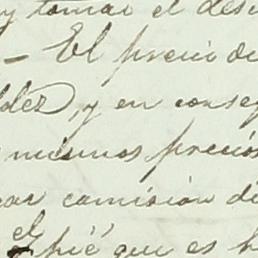 y tomar el des
- El precio de
dez, y en conseg
mismos precios
car comisión de
el
que es h